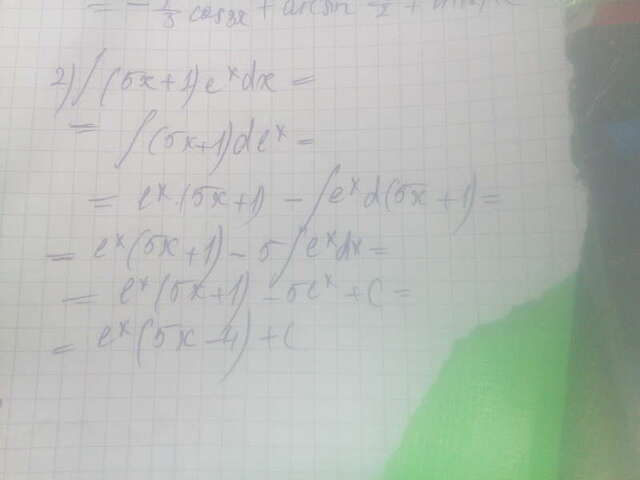 = -1/3 cos3x + arcsin x/2 +
2) ∫(5x+1)e^x dx =
= ∫(5x+1)de^x =
= e^x(5x+1) - ∫e^x d(5x+1) =
= e^x(5x+1) - 5∫e^x dx =
= e^x(5x+1) - 5e^x + C =
= e^x(5x-4) + C